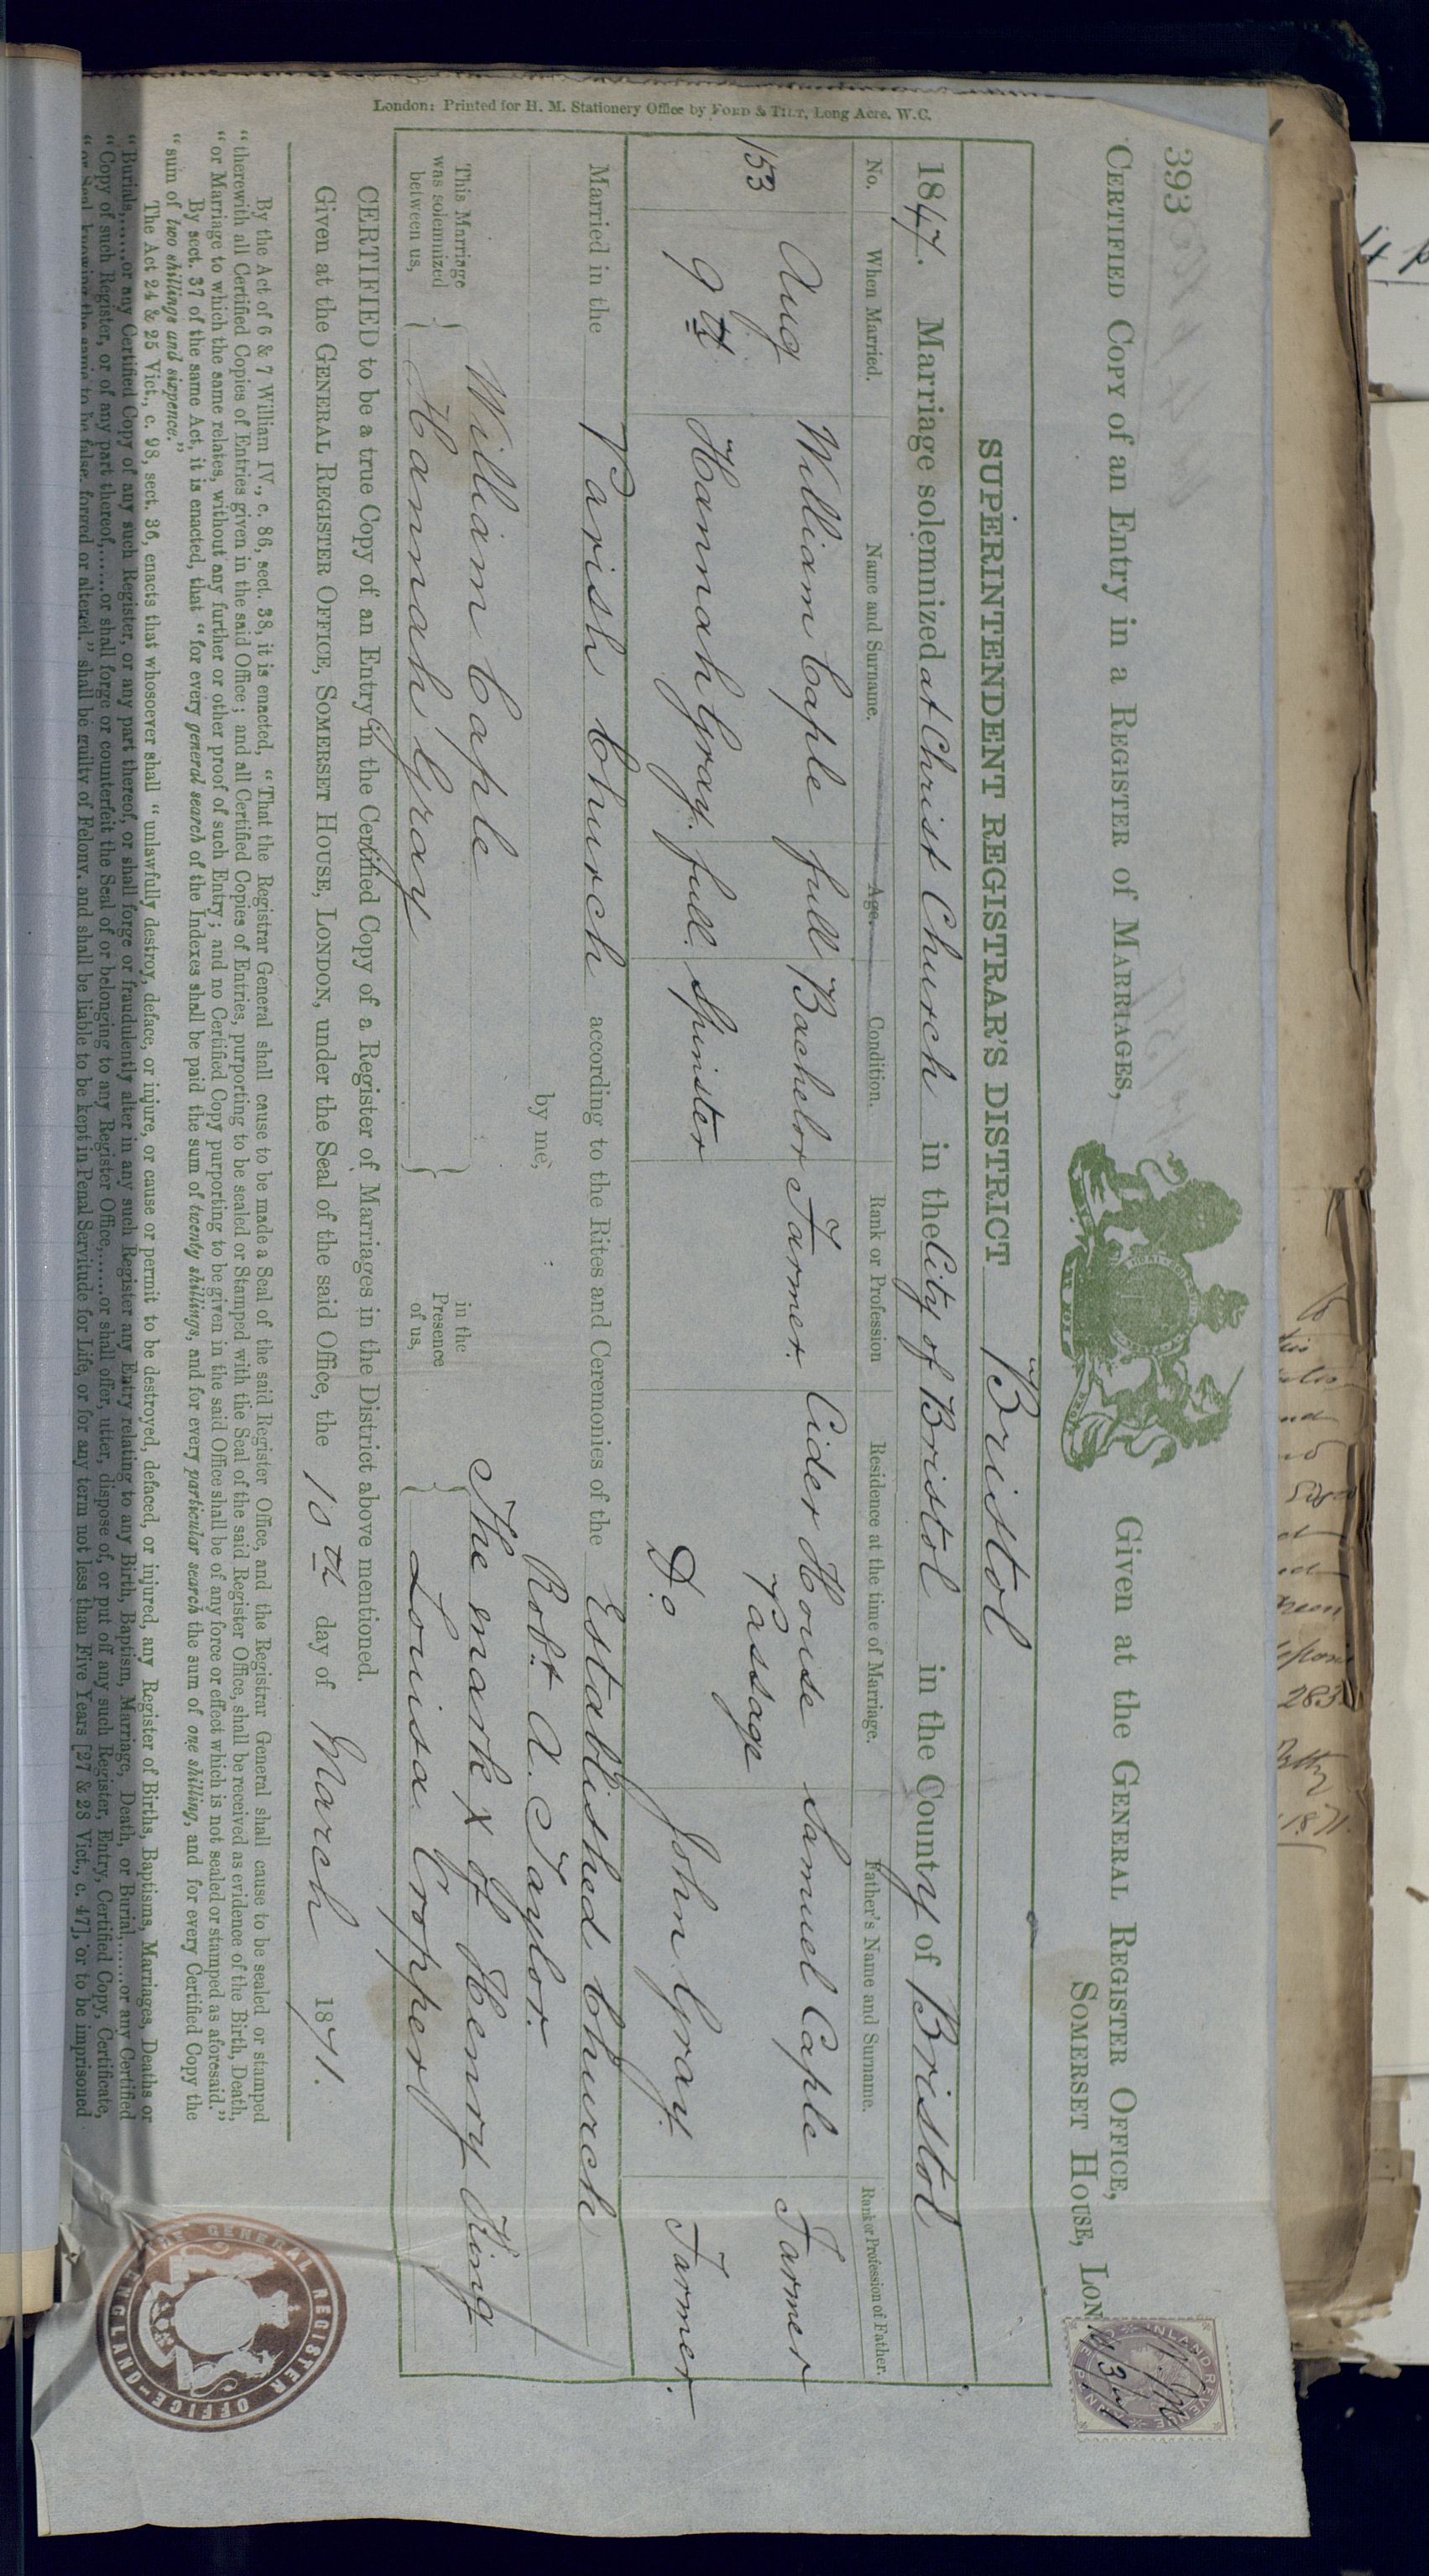 393
CERTIFIED COPY of an Entry in a REGISTER of MARRIAGES,
Given at the GENERAL REGISTER OFFICE,
SOMERSET HOUSE, LON
SUPERINTENDENT REGISTRAR'S DISTRICT Bristol
1847. Marriage solemnized at Christ Church in the City of Bristol in the County of Bristol
No. When Married. Name and Surname. Age. Condition. Rank or Profession Residence at the time of Marriage. Father's Name and Surname. Rank or Profession of Father.
153 Aug 9th William Caple full Bachelor Farmer. Cider House Passage Samuel Caple Farmer
Hannah Gray. full. Spinster Do John Gray. Farmer.
Married in the Parish Church according to the Rites and Ceremonies of the Established Church
by me, Robt. A. Taylor.
This Marriage was solemnized between us, William Caple
Hannah Gray
in the Presence of us, The mark x of Henry King
Louisa Cropper
CERTIFIED to be a true Copy of an Entry in the Certified Copy of a Register of Marriages in the District above mentioned.
Given at the GENERAL REGISTER OFFICE, SOMERSET HOUSE, LONDON, under the Seal of the said Office, the 10th day of March 1871.
By the Act of 6 & 7 William IV., c. 86, sect. 38, it is enacted, "That the Registrar General shall cause to be made a Seal of the said Register Office, and the Registrar General shall cause to be sealed or stamped
"therewith all Certified Copies of Entries given in the said Office; and all Certified Copies of Entries, purporting to be sealed or Stamped with the Seal of the said Register Office, shall be received as evidence of the Birth, Death,
"or Marriage to which the same relates, without any further or other proof of such Entry; and no Certified Copy purporting to be given in the said Office shall be of any force or effect which is not sealed or stamped as aforesaid."
By sect. 37 of the same Act, it is enacted, that "for every general search of the Indexes shall be paid the sum of twenty shillings, and for every particular search the sum of one shilling, and for every Certified Copy the
"sum of two shillings and sixpence."
The Act 24 & 25 Vict., c. 98, sect. 36, enacts that whosoever shall "unlawfully destroy, deface, or injure, or cause or permit to be destroyed, defaced, or injured, any Register of Births, Baptisms, Marriages, Deaths or
"Burials,......or any Certified Copy of any such Register, or any part thereof, or shall forge or fraudulently alter in any such Register any Entry relating to any Birth, Baptism, Marriage, Death, or Burial,......or any Certified
"Copy of such Register, or of any part thereof,......or shall forge or counterfeit the Seal of or belonging to any Register Office,......or shall offer, utter, dispose of, or put off any such Register, Entry, Certified Copy, Certificate,
"or Seal, knowing the same to be false, forged or altered," shall be guilty of Felony, and shall be liable to be kept in Penal Servitude for Life, or for any term not less than Five Years [27 & 28 Vict., c. 47], or to be imprisoned
London: Printed for H. M. Stationery Office by FORD & TILT, Long Acre, W.C.
INLAND REVENUE
10/3/71
GENERAL REGISTER OFFICE ENGLAND
283
1871.